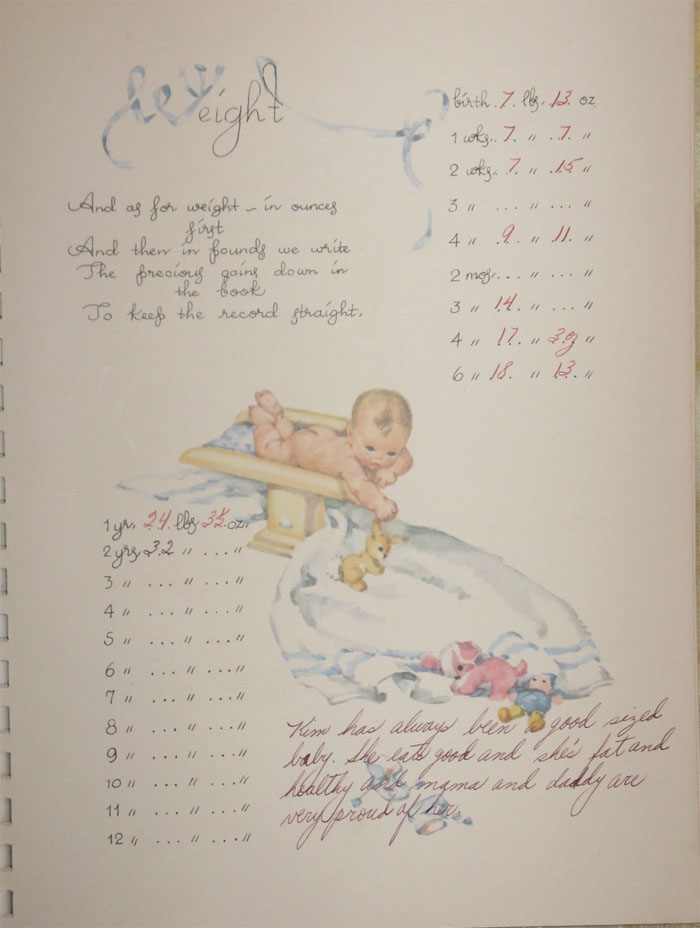 Weight
And as for weight – in ounces
first
And then in pounds we write
The precious gains down in
the book
To keep the record straight.
birth 7. lbs. 13. oz
1 wks.. 7. " .7. "
2 wks.. 7. " .15 "
3 " ... " ... "
4 " .9. " .11. "
2 mos... " ... "
3 " 14. " ... "
4 " 17. " 3oz "
6 " 18. " 13. "
1 yr. 24 lbs oz.
2 yrs 32 " ... "
3 " ... " ... "
4 " ... " ... "
5 " ... " ... "
6 " ... " ... "
7 " ... " ... "
8 " ... " ... "
9 " ... " ... "
10 " ... " ... "
11 " ... " ... "
12 " ... " ... "
Kim has always been a good sized
baby. She eats good and she's fat and
healthy and mama and daddy are
very proud of her.